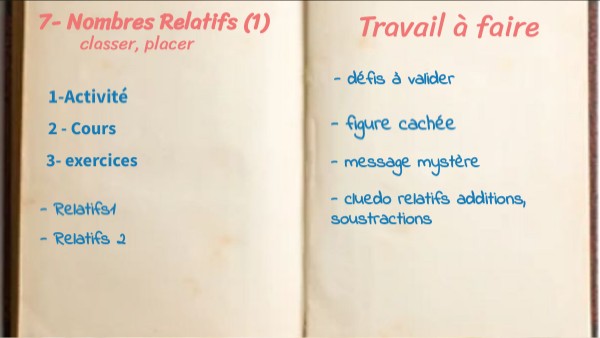 7- Nombres Relatifs (1)
classer, placer
1-Activité
2 - Cours
3- exercices
- Relatifs1
- Relatifs 2
Travail à faire
- défis à valider
- figure cachée
- message mystère
- cluedo relatifs additions,
soustractions